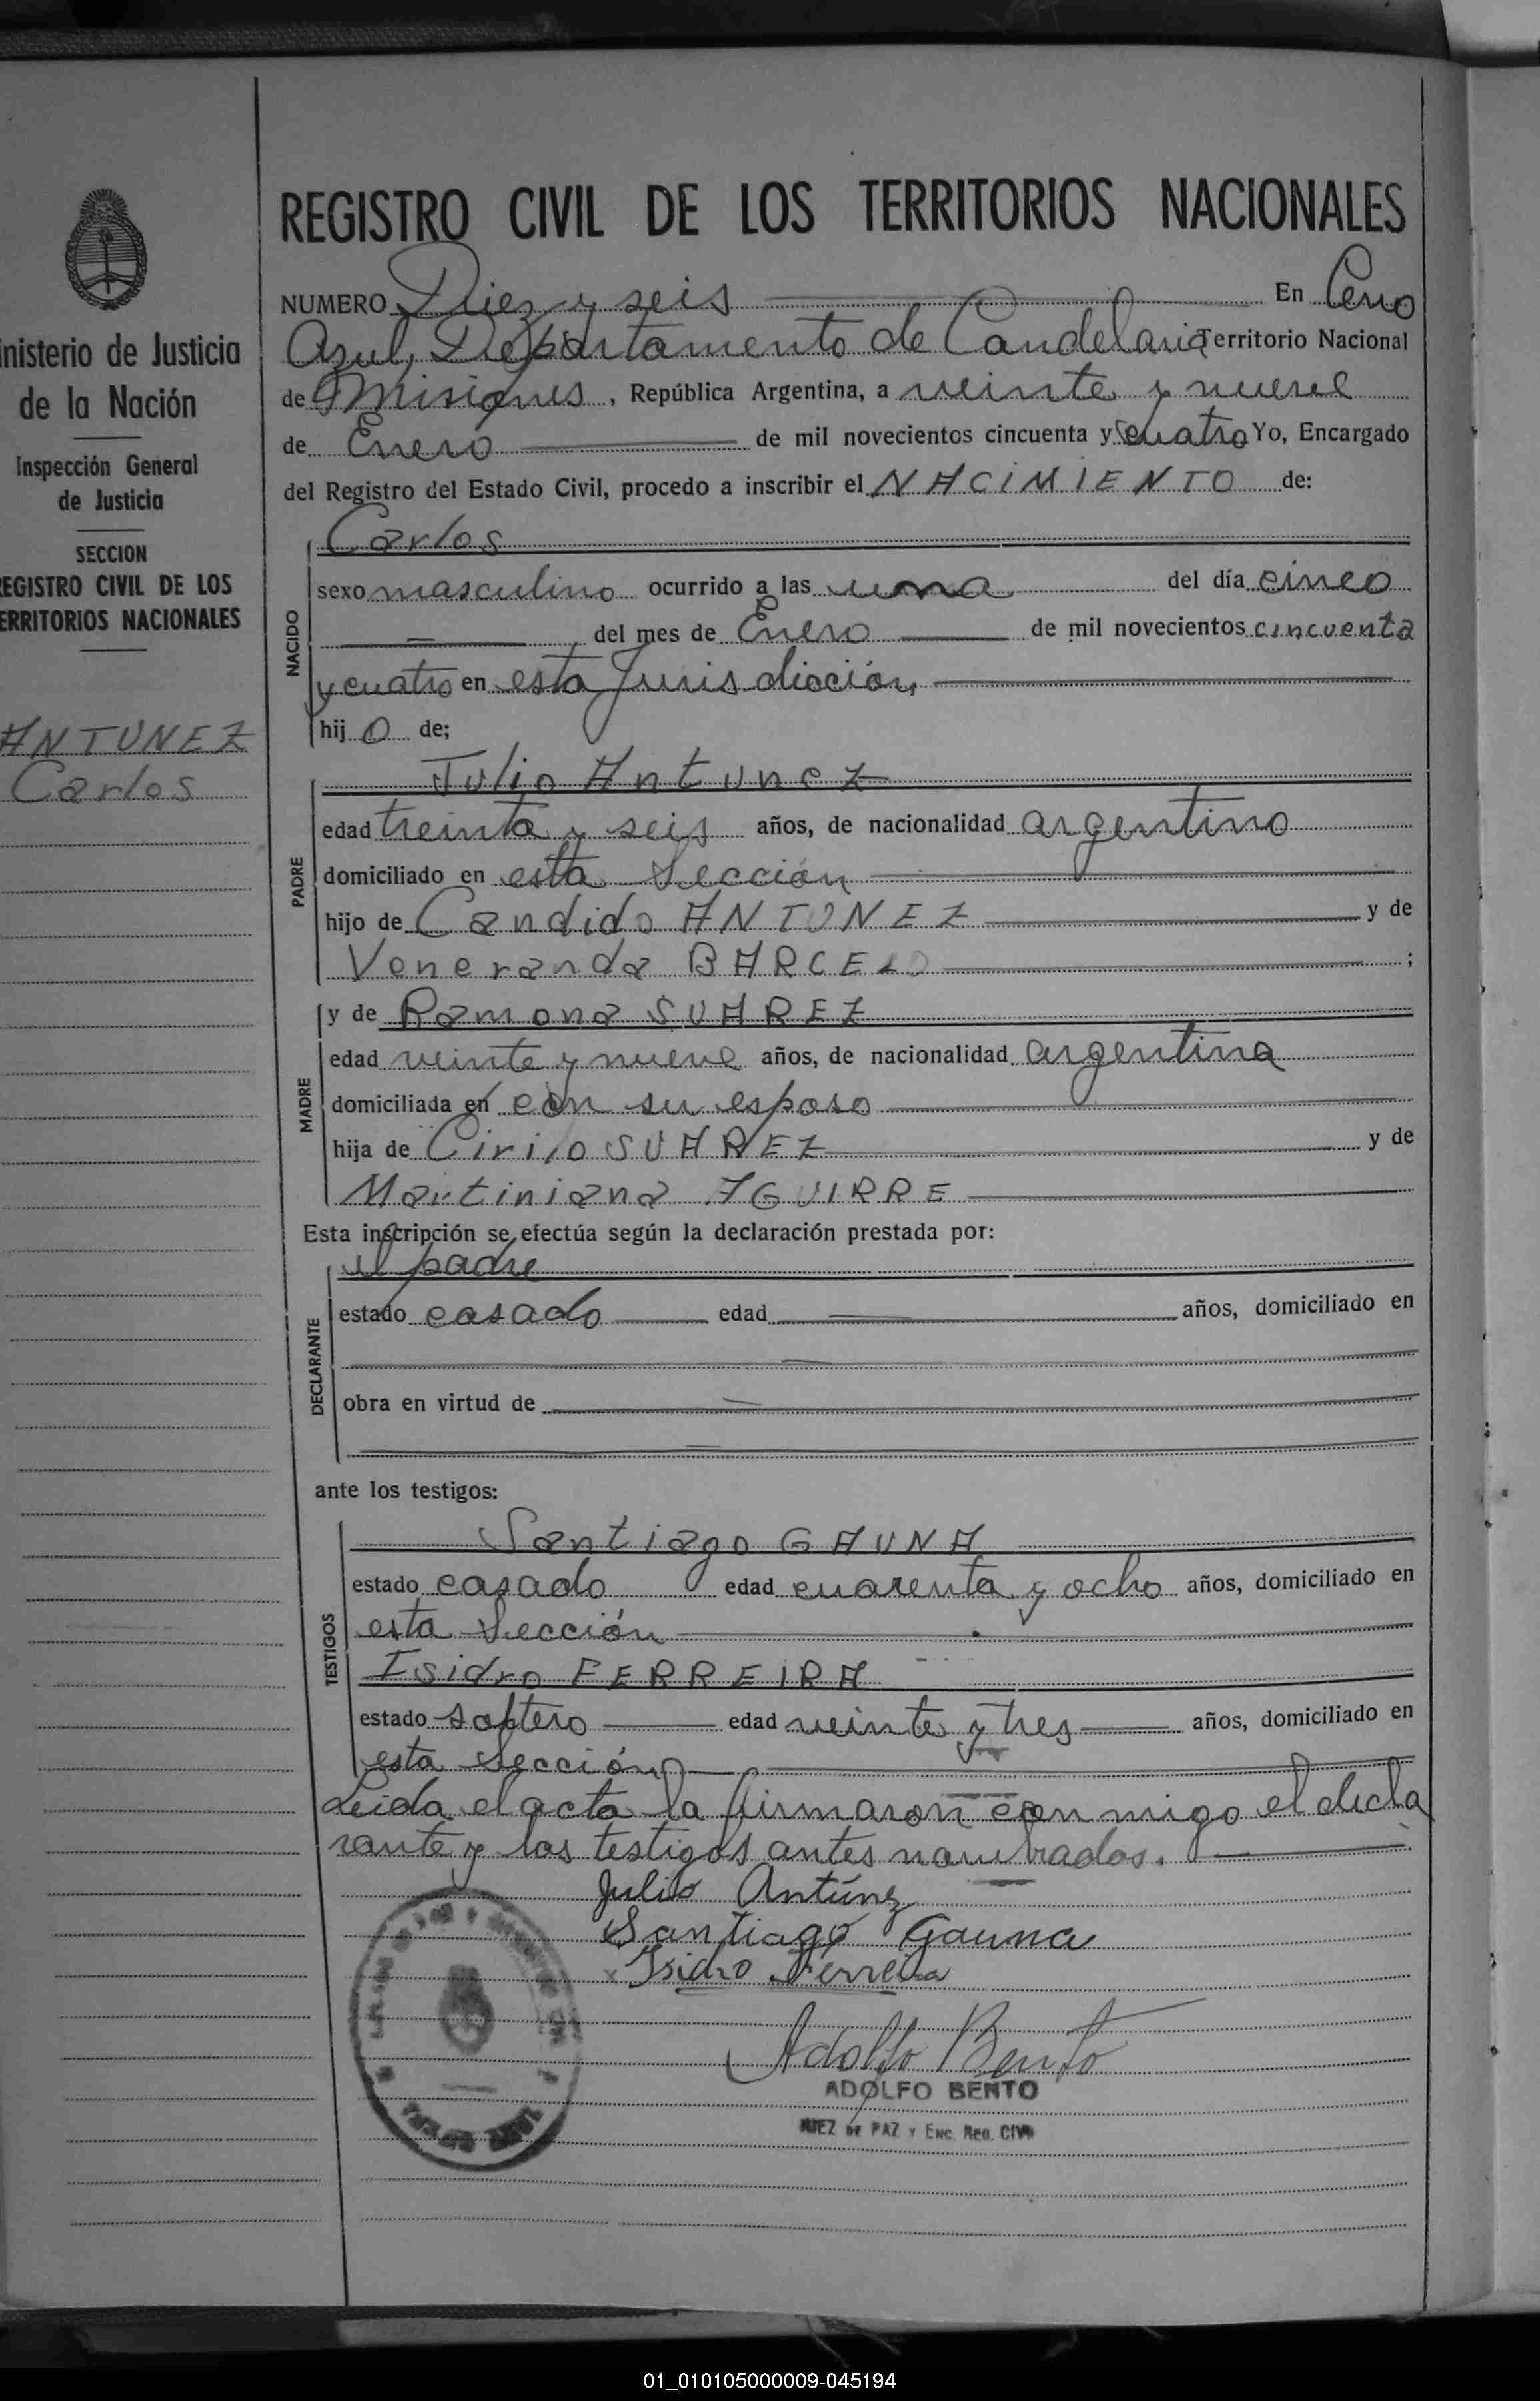 REGISTRO CIVIL DE LOS TERRITORIOS NACIONALES
NUMERO Diez y seis En Cerro
Azul, Departamento de Candelaria Territorio Nacional
de Misiones, República Argentina, a veinte y nueve
de Enero de mil novecientos cincuenta y cuatro Yo, Encargado
del Registro del Estado Civil, procedo a inscribir el NACIMIENTO de:
NACIDO
Carlos
sexo masculino ocurrido a las una del día cinco
del mes de Enero de mil novecientos cincuenta
y cuatro en esta Jurisdicción,
hijo de;
PADRE
Julio Antunez
edad treinta y seis años, de nacionalidad argentino
domiciliado en esta Sección
hijo de Candido ANTUNEZ y de
Veneranda BARCELO ;
MADRE
y de Ramona SUAREZ
edad veinte y nueve años, de nacionalidad argentina
domiciliada en con su esposo
hija de Cirilo SUAREZ y de
Martiniana AGUIRRE
Esta inscripción se efectúa según la declaración prestada por:
DECLARANTE
el padre
estado casado edad años, domiciliado en
obra en virtud de
ante los testigos:
TESTIGOS
Santiago GAUNA
estado casado edad cuarenta y ocho años, domiciliado en
esta Sección
Isidro FERREIRA
estado soltero edad veinte y tres años, domiciliado en
esta Sección
Leida el acta la firmaron conmigo el decla
rante y los testigos antes nombrados.
Julio Antúnez
Santiago Gauna
x Isidro Ferreira
Adolfo Bento
ADOLFO BENTO
JUEZ DE PAZ Y ENC. REG. CIVIL
nisterio de Justicia
de la Nación
Inspección General
de Justicia
SECCION
EGISTRO CIVIL DE LOS
ERRITORIOS NACIONALES
ANTUNEZ
Carlos
01_010105000009-045194